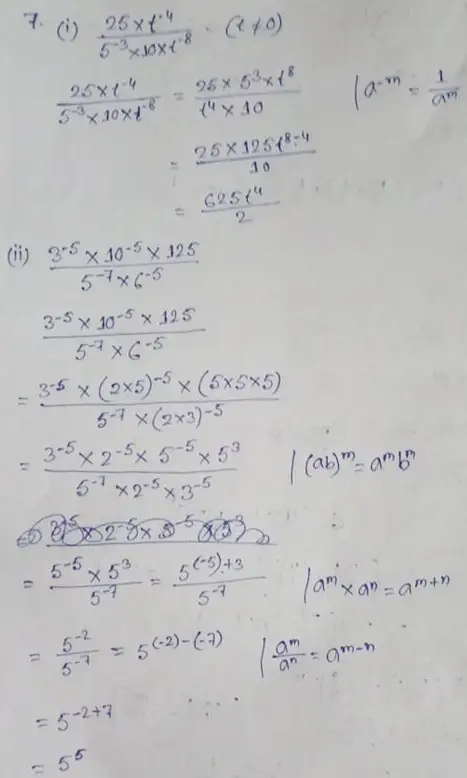 7. (i) \frac{25 \times t^{-4}}{5^{-3} \times 10 \times t^{-8}} . (t ≠ 0)
\frac{25 \times t^{-4}}{5^{-3} \times 10 \times t^{-8}} = \frac{25 \times 5^{3} \times t^{8}}{t^{4} \times 10} | a^{-m} = \frac{1}{a^{m}}
= \frac{25 \times 125 t^{8-4}}{10}
= \frac{625 t^{4}}{2}
(ii) \frac{3^{-5} \times 10^{-5} \times 125}{5^{-7} \times 6^{-5}}
\frac{3^{-5} \times 10^{-5} \times 125}{5^{-7} \times 6^{-5}}
= \frac{3^{-5} \times (2 \times 5)^{-5} \times (5 \times 5 \times 5)}{5^{-7} \times (2 \times 3)^{-5}}
= \frac{3^{-5} \times 2^{-5} \times 5^{-5} \times 5^{3}}{5^{-7} \times 2^{-5} \times 3^{-5}} | (ab)^{m} = a^{m} b^{m}
= \frac{5^{-5} \times 5^{3}}{5^{-7}} = \frac{5^{(-5)+3}}{5^{-7}} | a^{m} \times a^{n} = a^{m+n}
= \frac{5^{-2}}{5^{-7}} = 5^{(-2)-(-7)} | \frac{a^{m}}{a^{n}} = a^{m-n}
= 5^{-2+7}
= 5^{5}